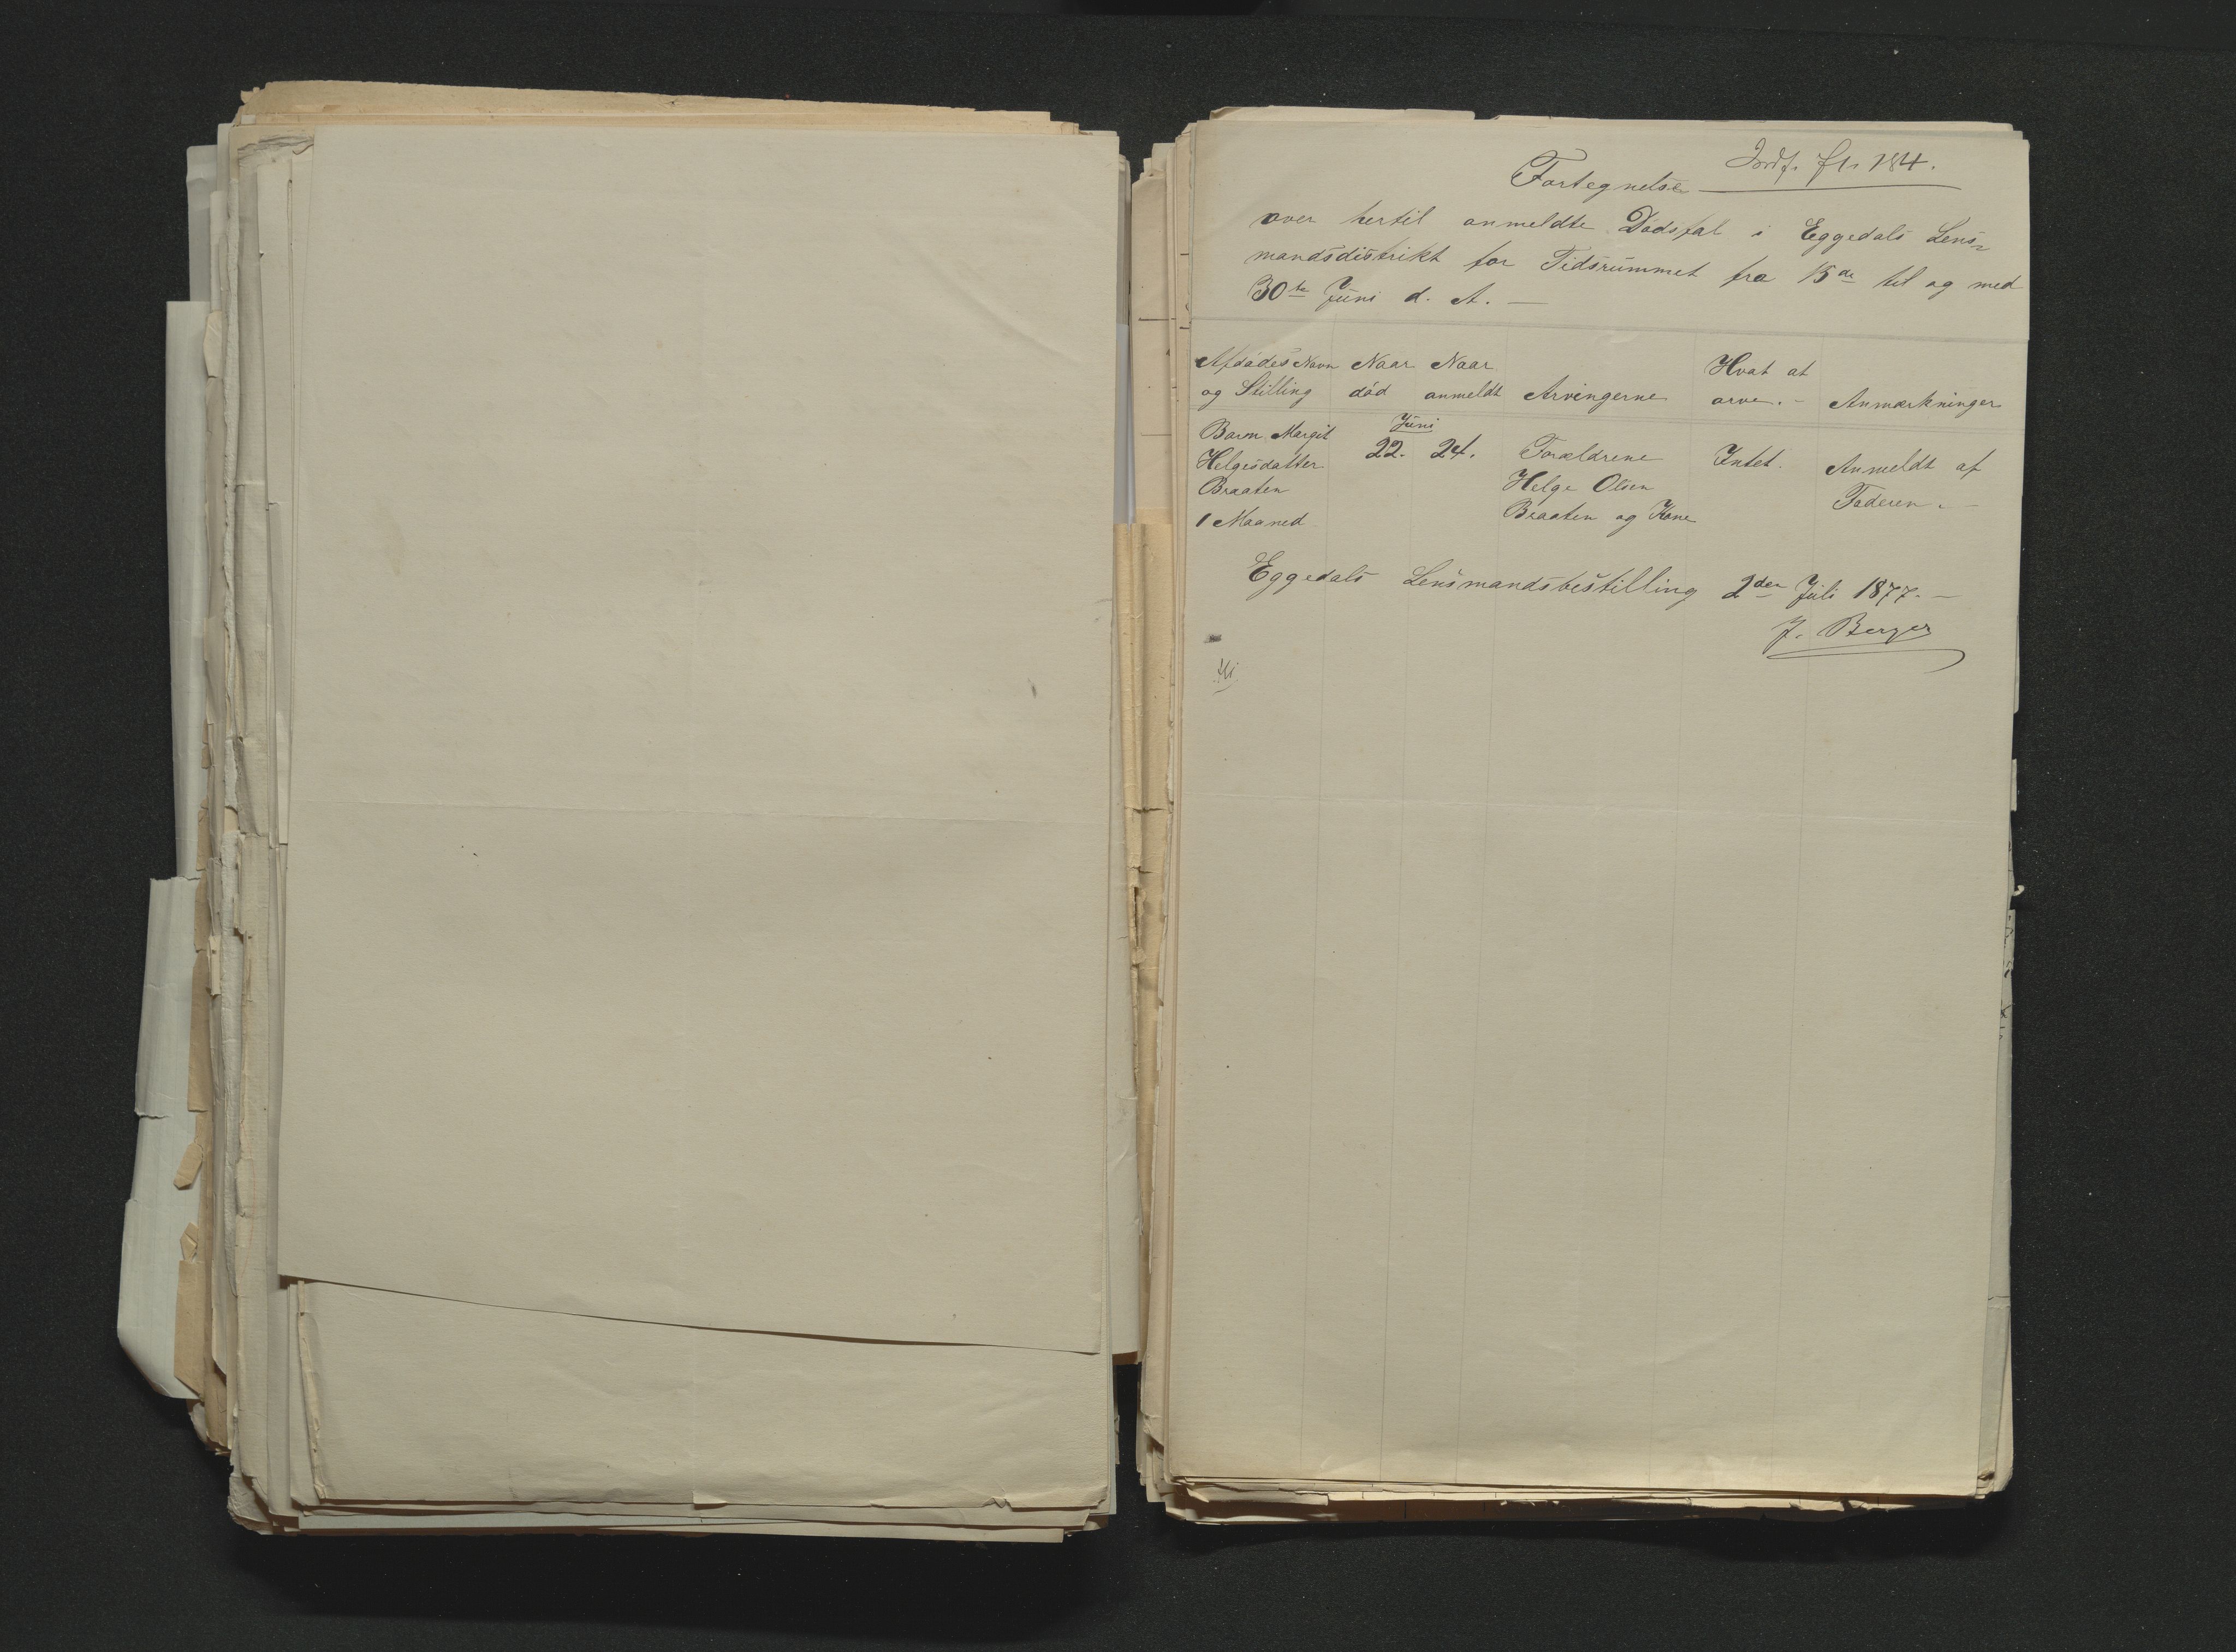 Indf. fl. 184.
Fortegnelse
over hertil anmeldte Dødsfal i Eggedals Lens=
mandsdistrikt for Tidsrummet fra 15de til og med
30te Juni d. A. —
Afdødes Navn Naar Naar Hvat at
og Stilling død anmeldt Arvingerne arve. - Anmærkninger
Juni
Barn Margit 22. 24. Forældrene Intet. Anmeldt af
Helgesdatter Helge Olsen Faderen. -
Braaten Braaten og Kone
1 Maaned
Eggedals Lensmandsbestilling 2den Juli 1877. —
J. Berger